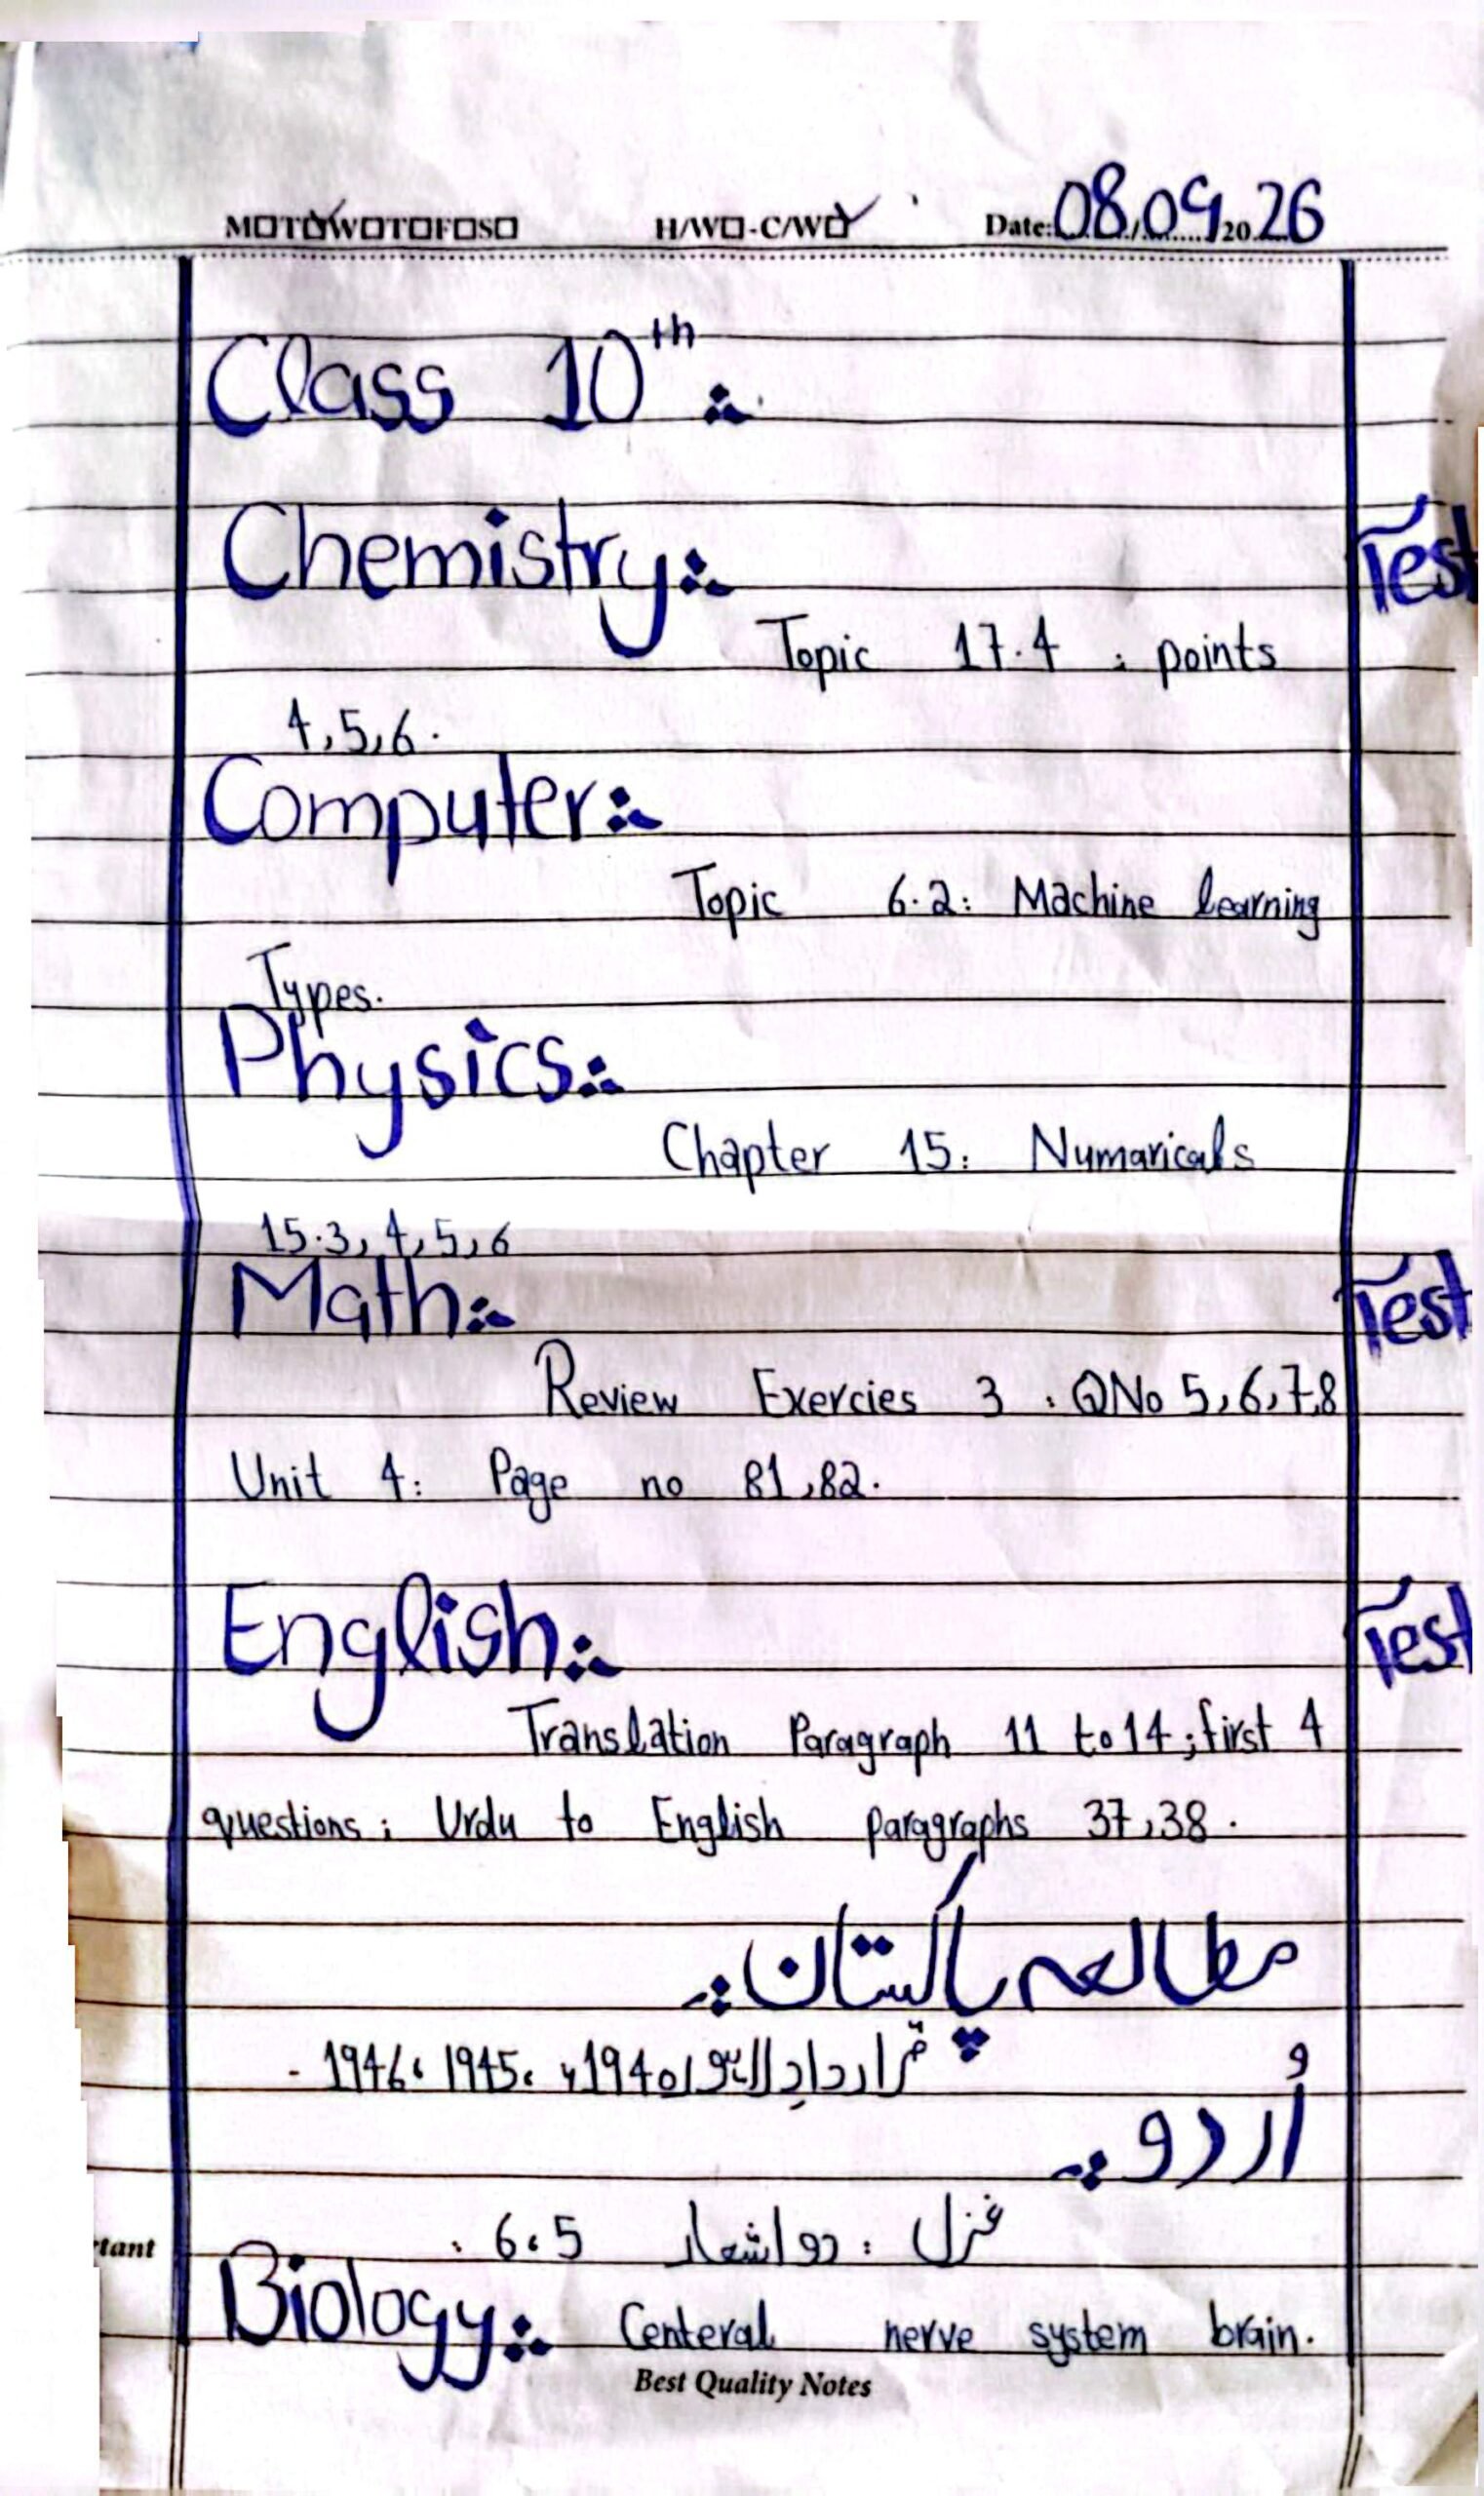 M□T☑W□T□F□S□ H/W□-C/W☑ Date: 08/09/2026
Class 10th :-
Chemistry :- Test
Topic 17.4 : points
4,5,6.
Computer :-
Topic 6.2: Machine learning
Types.
Physics :-
Chapter 15: Numaricals
15.3, 4, 5, 6
Math :- Test
Review Exercies 3 . QNo 5,6,7,8
Unit 4: Page no 81,82.
English :- Test
Translation Paragraph 11 to 14 ; first 4
questions ; Urdu to English paragraphs 37,38.
مطالعہ پاکستان :-
قراردادِ لاہور 1940ء، 1945، 1946 -
اُردو :-
غزل : دو اشعار 5، 6 .
tant
Biology :- Centeral nerve system brain.
Best Quality Notes